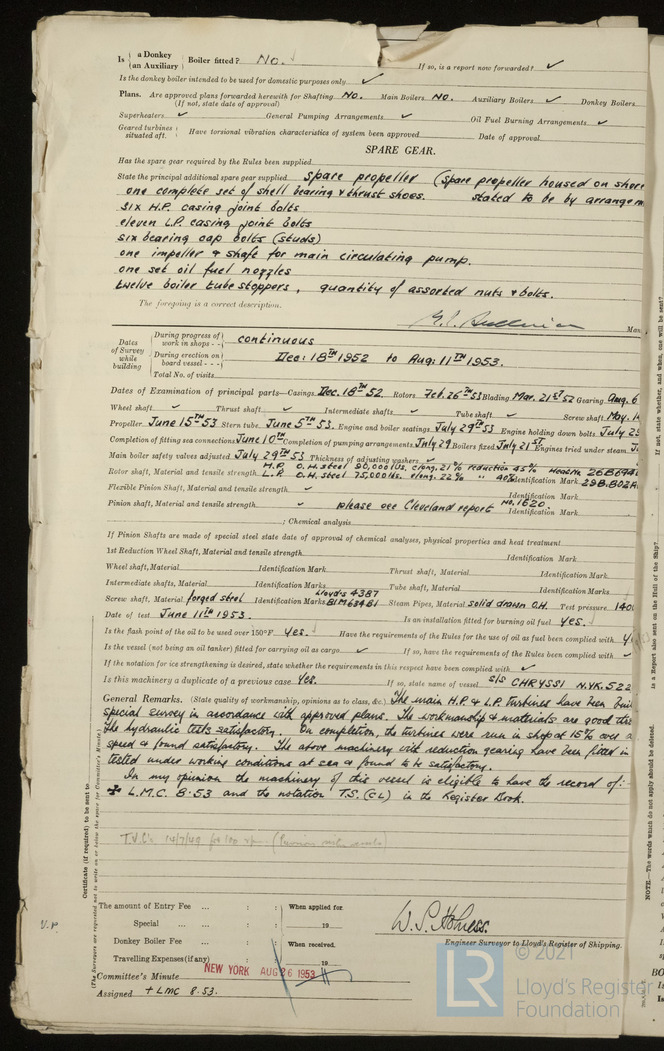 Is { a Donkey / an Auxiliary } Boiler fitted? No. If so, is a report now forwarded? ✓
Is the donkey boiler intended to be used for domestic purposes only ✓
Plans. Are approved plans forwarded herewith for Shafting No. Main Boilers No. Auxiliary Boilers ✓ Donkey Boilers
(If not, state date of approval)
Superheaters ✓ General Pumping Arrangements ✓ Oil Fuel Burning Arrangements ✓
Geared turbines situated aft. } Have torsional vibration characteristics of system been approved Date of approval
SPARE GEAR.
Has the spare gear required by the Rules been supplied
State the principal additional spare gear supplied spare propeller (spare propeller housed on shore
one complete set of shell bearing & thrust shoes. stated to be by arrangem
six H.P. casing joint bolts
eleven L.P. casing joint bolts
six bearing cap bolts (studs)
one impeller & shaft for main circulating pump.
one set oil fuel nozzles
twelve boiler tube stoppers, quantity of assorted nuts & bolts.
The foregoing is a correct description.
Man
Dates of Survey while building { During progress of work in shops - - } continuous
{ During erection on board vessel - - - } Dec: 18TH 1952 to Aug: 11TH 1953.
Total No. of visits
Dates of Examination of principal parts—Casings Dec. 18TH 52. Rotors Feb. 26TH 53 Blading Mar. 21ST 52 Gearing Aug. 6
Wheel shaft ✓ Thrust shaft ✓ Intermediate shafts ✓ Tube shaft ✓ Screw shaft May. 1
Propeller June 15TH 53 Stern tube June 5TH 53. Engine and boiler seatings July 29TH 53 Engine holding down bolts July 25
Completion of fitting sea connections June 10TH Completion of pumping arrangements July 29 Boilers fixed July 21ST. Engines tried under steam
Main boiler safety valves adjusted July 29TH 53 Thickness of adjusting washers ✓
Rotor shaft, Material and tensile strength H.P. O.H. steel 90,000 lbs. elong. 21% reduction 45% Heat No 26B694
L.P. O.H. Steel 75,000 lbs. elong. 22% " 40% Identification Mark 29B.802A
Flexible Pinion Shaft, Material and tensile strength ✓ Identification Mark
Pinion shaft, Material and tensile strength ✓ please see Cleveland report No. 1620. Identification Mark
; Chemical analysis
If Pinion Shafts are made of special steel state date of approval of chemical analyses, physical properties and heat treatment
1st Reduction Wheel Shaft, Material and tensile strength Identification Mark
Wheel shaft, Material Identification Mark Thrust shaft, Material Identification Mark
Intermediate shafts, Material Identification Marks Tube shaft, Material Identification Marks
Screw shaft, Material forged steel Identification Marks Lloyd's 4387 81M63481 Steam Pipes, Material solid drawn O.H. Test pressure 140
Date of test June 11TH 1953. Is an installation fitted for burning oil fuel yes.
Is the flash point of the oil to be used over 150°F yes. Have the requirements of the Rules for the use of oil as fuel been complied with y
Is the vessel (not being an oil tanker) fitted for carrying oil as cargo ✓ If so, have the requirements of the Rules been complied with ✓
If the notation for ice strengthening is desired, state whether the requirements in this respect have been complied with ✓
Is this machinery a duplicate of a previous case Yes. If so, state name of vessel s/s CHRYSSI N.YK. 522
General Remarks. (State quality of workmanship, opinions as to class, &c.) The main H.P. & L.P. turbines have been buil
special survey in accordance with approved plans. The workmanship & materials are good
the hydraulic tests satisfactory. On completion, the turbines were run in shop at 15% over
speed & found satisfactory. The above machinery with reduction gearing have been fitted in
tested under working conditions at sea & found to be satisfactory.
In my opinion the machinery of this vessel is eligible to have the record of:-
✠ L.M.C. 8.53 and the notation T.S. (CL) in the Register Book.
T.V.C's 14/7/49
The amount of Entry Fee ... : : When applied for
Special ... : : 19
Donkey Boiler Fee ... : : When received.
Travelling Expenses (if any) : : 19
W. S. Holness.
Engineer Surveyor to Lloyd's Register of Shipping.
Committee's Minute NEW YORK AUG 26 1953
Assigned + LMC 8.53.
Certificate (if required) to be sent to
(The Surveyors are requested not to write on or below the space for Committee's Minute.)
If not, state whether, and when, one will be sent?
Is a Report also sent on the Hull of the Ship?
NOTE.—The words which do not apply should be deleted.
© 2021
LR
Lloyd's Register
Foundation